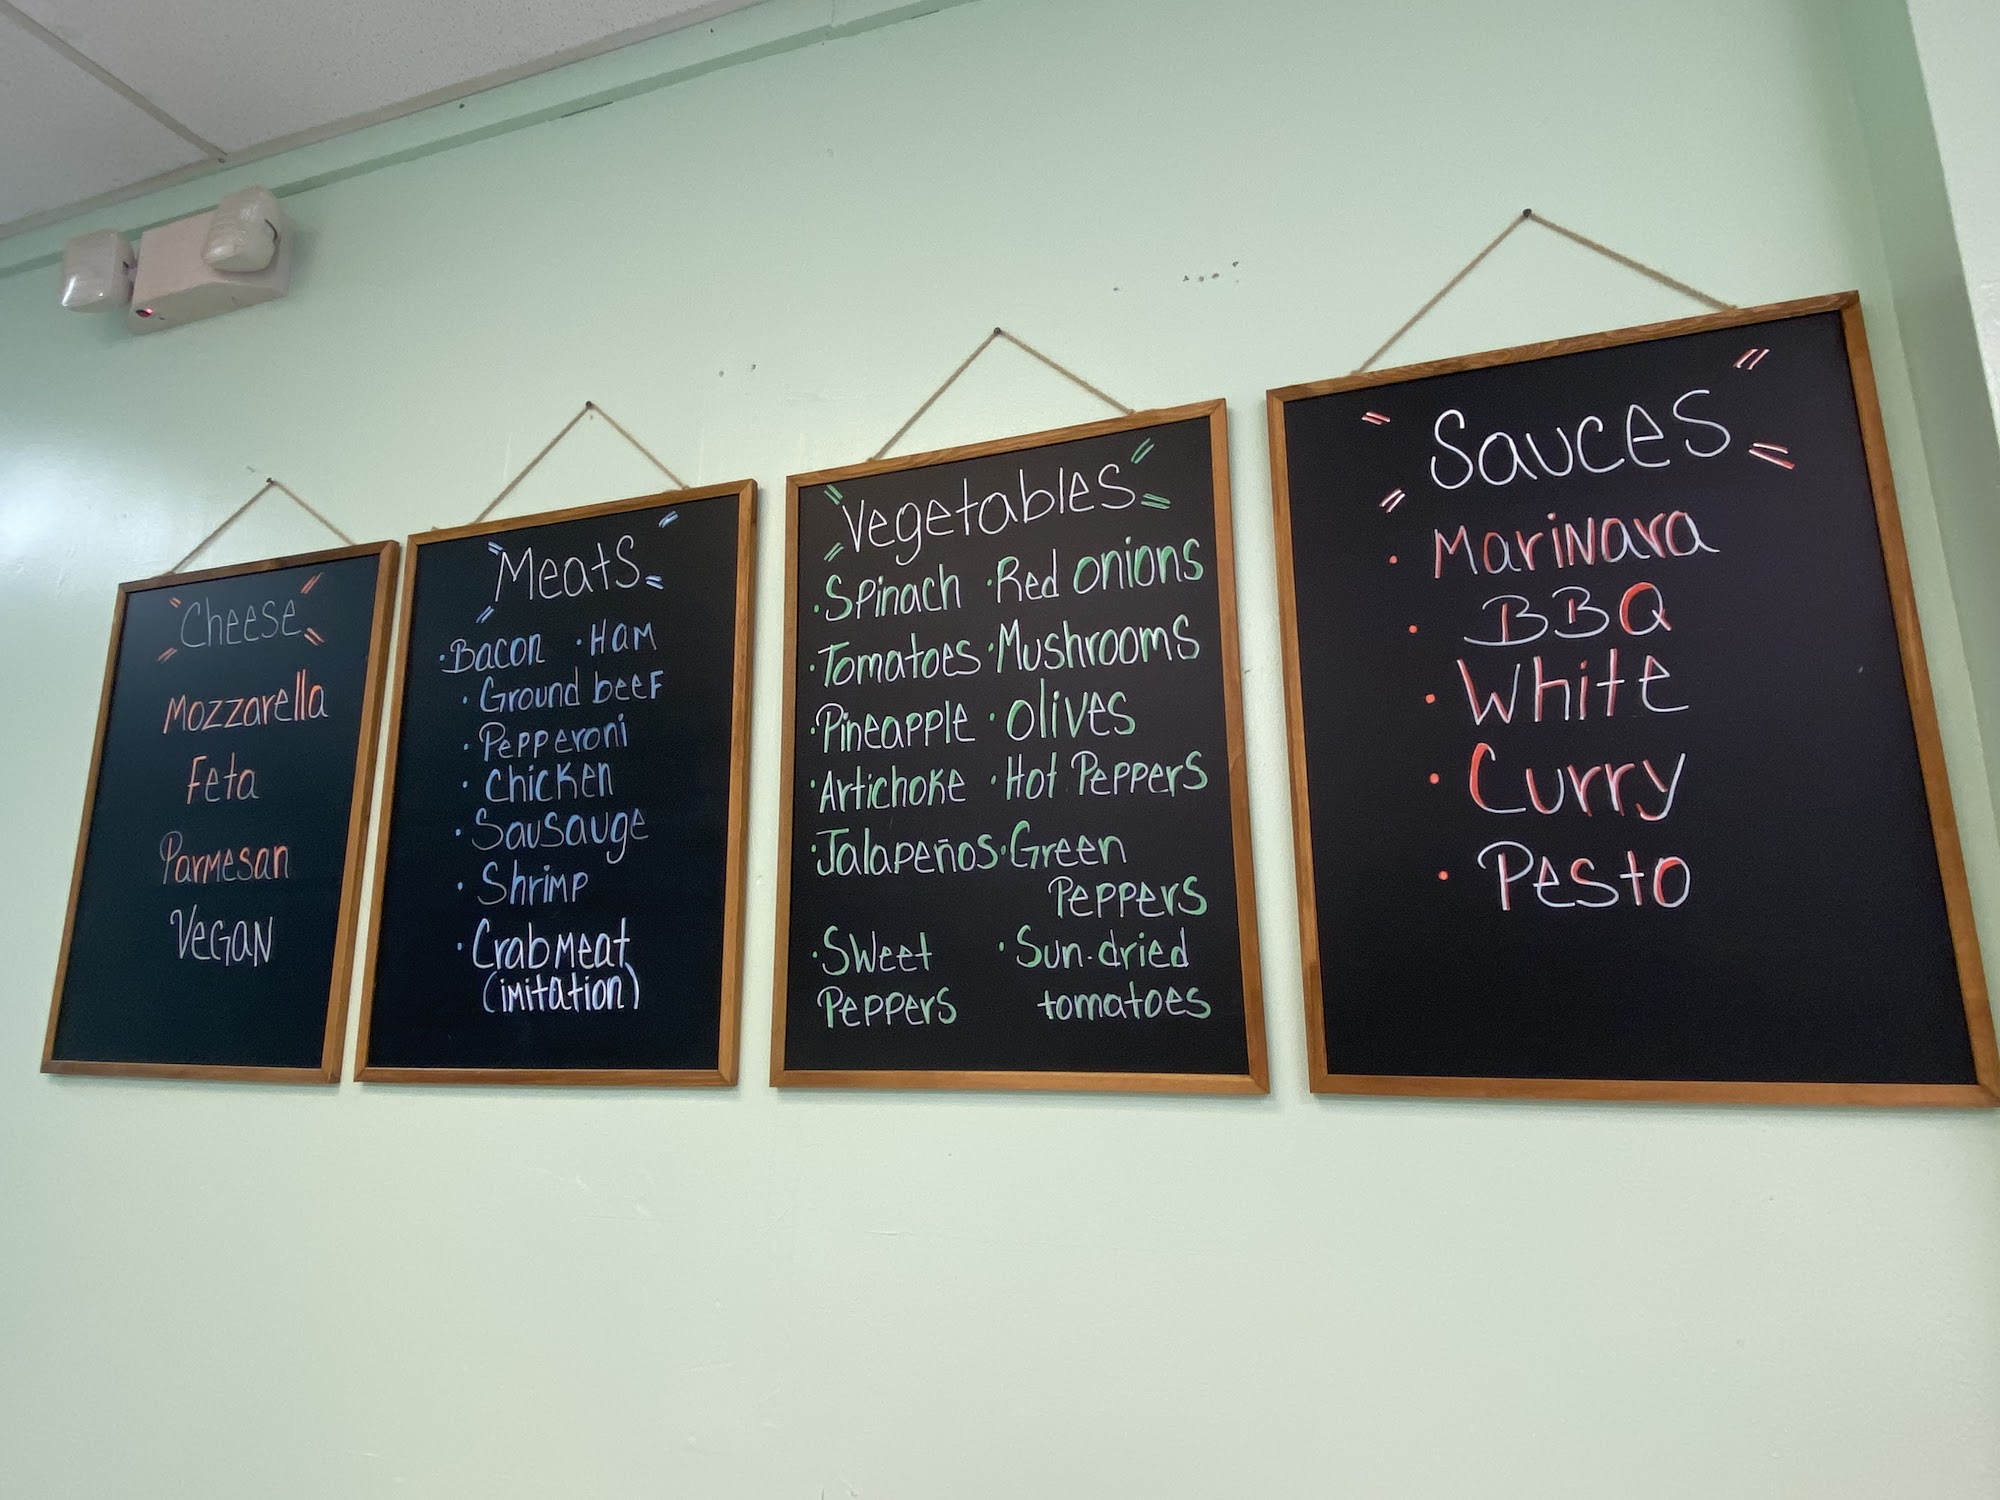 Cheese
Mozzarella
Feta
Parmesan
Vegan
Meats
· Bacon · Ham
· Ground beef
· Pepperoni
· Chicken
· Sausauge
· Shrimp
· Crabmeat
(imitation)
Vegetables
· Spinach · Red onions
· Tomatoes · Mushrooms
· Pineapple · olives
· Artichoke · Hot Peppers
· Jalapeños · Green
Peppers
· Sweet · Sun-dried
Peppers tomatoes
Sauces
· Marinara
· BBQ
· White
· Curry
· Pesto